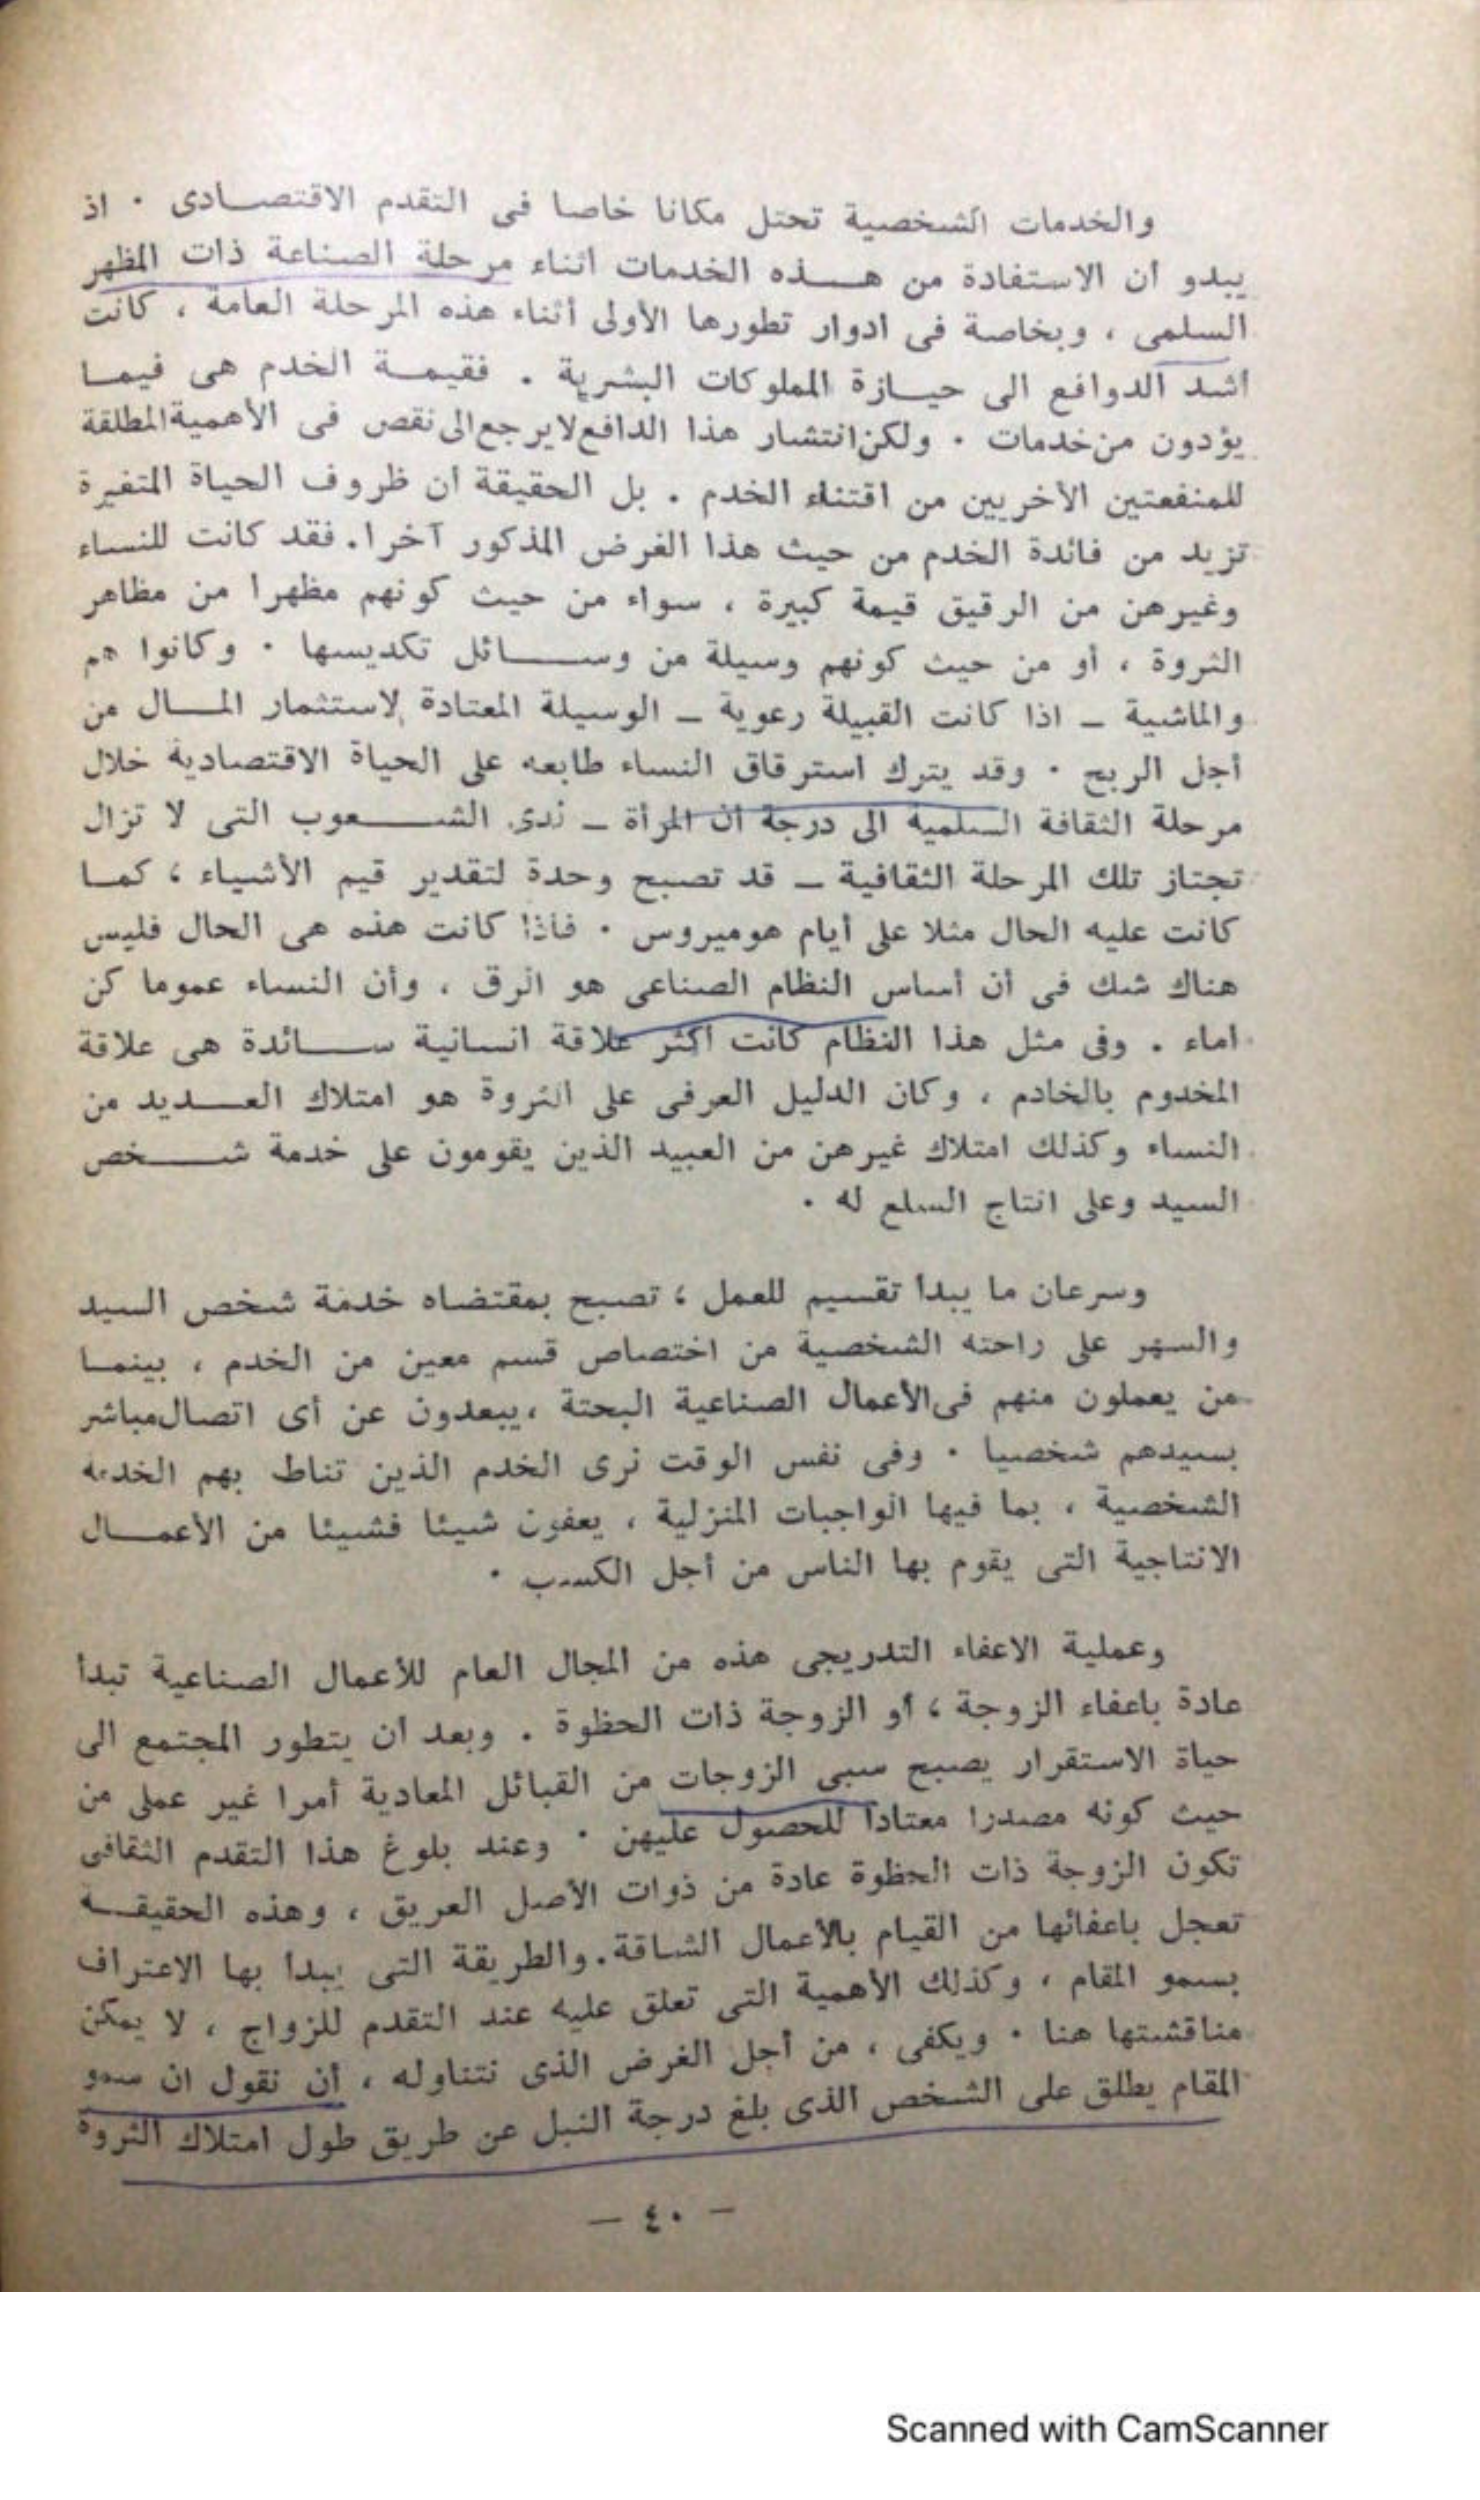 والخدمات الشخصية تحتل مكانا خاصا فى التقدم الاقتصادى . اذ
يبدو أن الاستفادة من هذه الخدمات أثناء مرحلة الصناعة ذات المظهر
السلمى ، وبخاصة فى ادوار تطورها الأولى أثناء هذه المرحلة العامة ، كانت
أشد الدوافع الى حيازة المملوكات البشرية . فقيمة الخدم هى فيما
يؤدون من خدمات . ولكن انتشار هذا الدافع لايرجع الى نقص فى الأهمية المطلقة
للمنفعتين الأخريين من اقتناء الخدم . بل الحقيقة أن ظروف الحياة المتغيرة
تزيد من فائدة الخدم من حيث هذا الغرض المذكور آخرا . فقد كانت للنساء
وغيرهن من الرقيق قيمة كبيرة ، سواء من حيث كونهم مظهرا من مظاهر
الثروة ، أو من حيث كونهم وسيلة من وسائل تكديسها . وكانوا هم
والماشية ــ اذا كانت القبيلة رعوية ــ الوسيلة المعتادة لاستثمار المال من
أجل الربح . وقد يترك استرقاق النساء طابعه على الحياة الاقتصادية خلال
مرحلة الثقافة السلمية الى درجة أن المرأة ــ لدى الشعوب التى لا تزال
تجتاز تلك المرحلة الثقافية ــ قد تصبح وحدة لتقدير قيم الأشياء ؛ كما
كانت عليه الحال مثلا على أيام هوميروس . فاذا كانت هذه هى الحال فليس
هناك شك فى أن أساس النظام الصناعى هو الرق ، وأن النساء عموما كن
اماء . وفى مثل هذا النظام كانت أكثر علاقة انسانية سائدة هى علاقة
المخدوم بالخادم ، وكان الدليل العرفى على الثروة هو امتلاك العديد من
النساء وكذلك امتلاك غيرهن من العبيد الذين يقومون على خدمة شخص
السيد وعلى انتاج السلع له .
وسرعان ما يبدأ تقسيم للعمل ؛ تصبح بمقتضاه خدمة شخص السيد
والسهر على راحته الشخصية من اختصاص قسم معين من الخدم ، بينما
من يعملون منهم فى الأعمال الصناعية البحتة ، يبعدون عن أى اتصال مباشر
بسيدهم شخصيا . وفى نفس الوقت نرى الخدم الذين تناط بهم الخدمة
الشخصية ، بما فيها الواجبات المنزلية ، يعفون شيئا فشيئا من الأعمال
الانتاجية التى يقوم بها الناس من أجل الكسب .
وعملية الاعفاء التدريجى هذه من المجال العام للأعمال الصناعية تبدأ
عادة باعفاء الزوجة ؛ أو الزوجة ذات الحظوة . وبعد أن يتطور المجتمع الى
حياة الاستقرار يصبح سبى الزوجات من القبائل المعادية أمرا غير عملى من
حيث كونه مصدرا معتادا للحصول عليهن . وعند بلوغ هذا التقدم الثقافى
تكون الزوجة ذات الحظوة عادة من ذوات الأصل العريق ، وهذه الحقيقة
تعجل باعفائها من القيام بالأعمال الشاقة . والطريقة التى يبدأ بها الاعتراف
بسمو المقام ، وكذلك الأهمية التى تعلق عليه عند التقدم للزواج ، لا يمكن
مناقشتها هنا . ويكفى ، من أجل الغرض الذى نتناوله ، أن نقول ان سمو
المقام يطلق على الشخص الذى بلغ درجة النبل عن طريق طول امتلاك الثروة
ــ ٤٠ ــ
Scanned with CamScanner